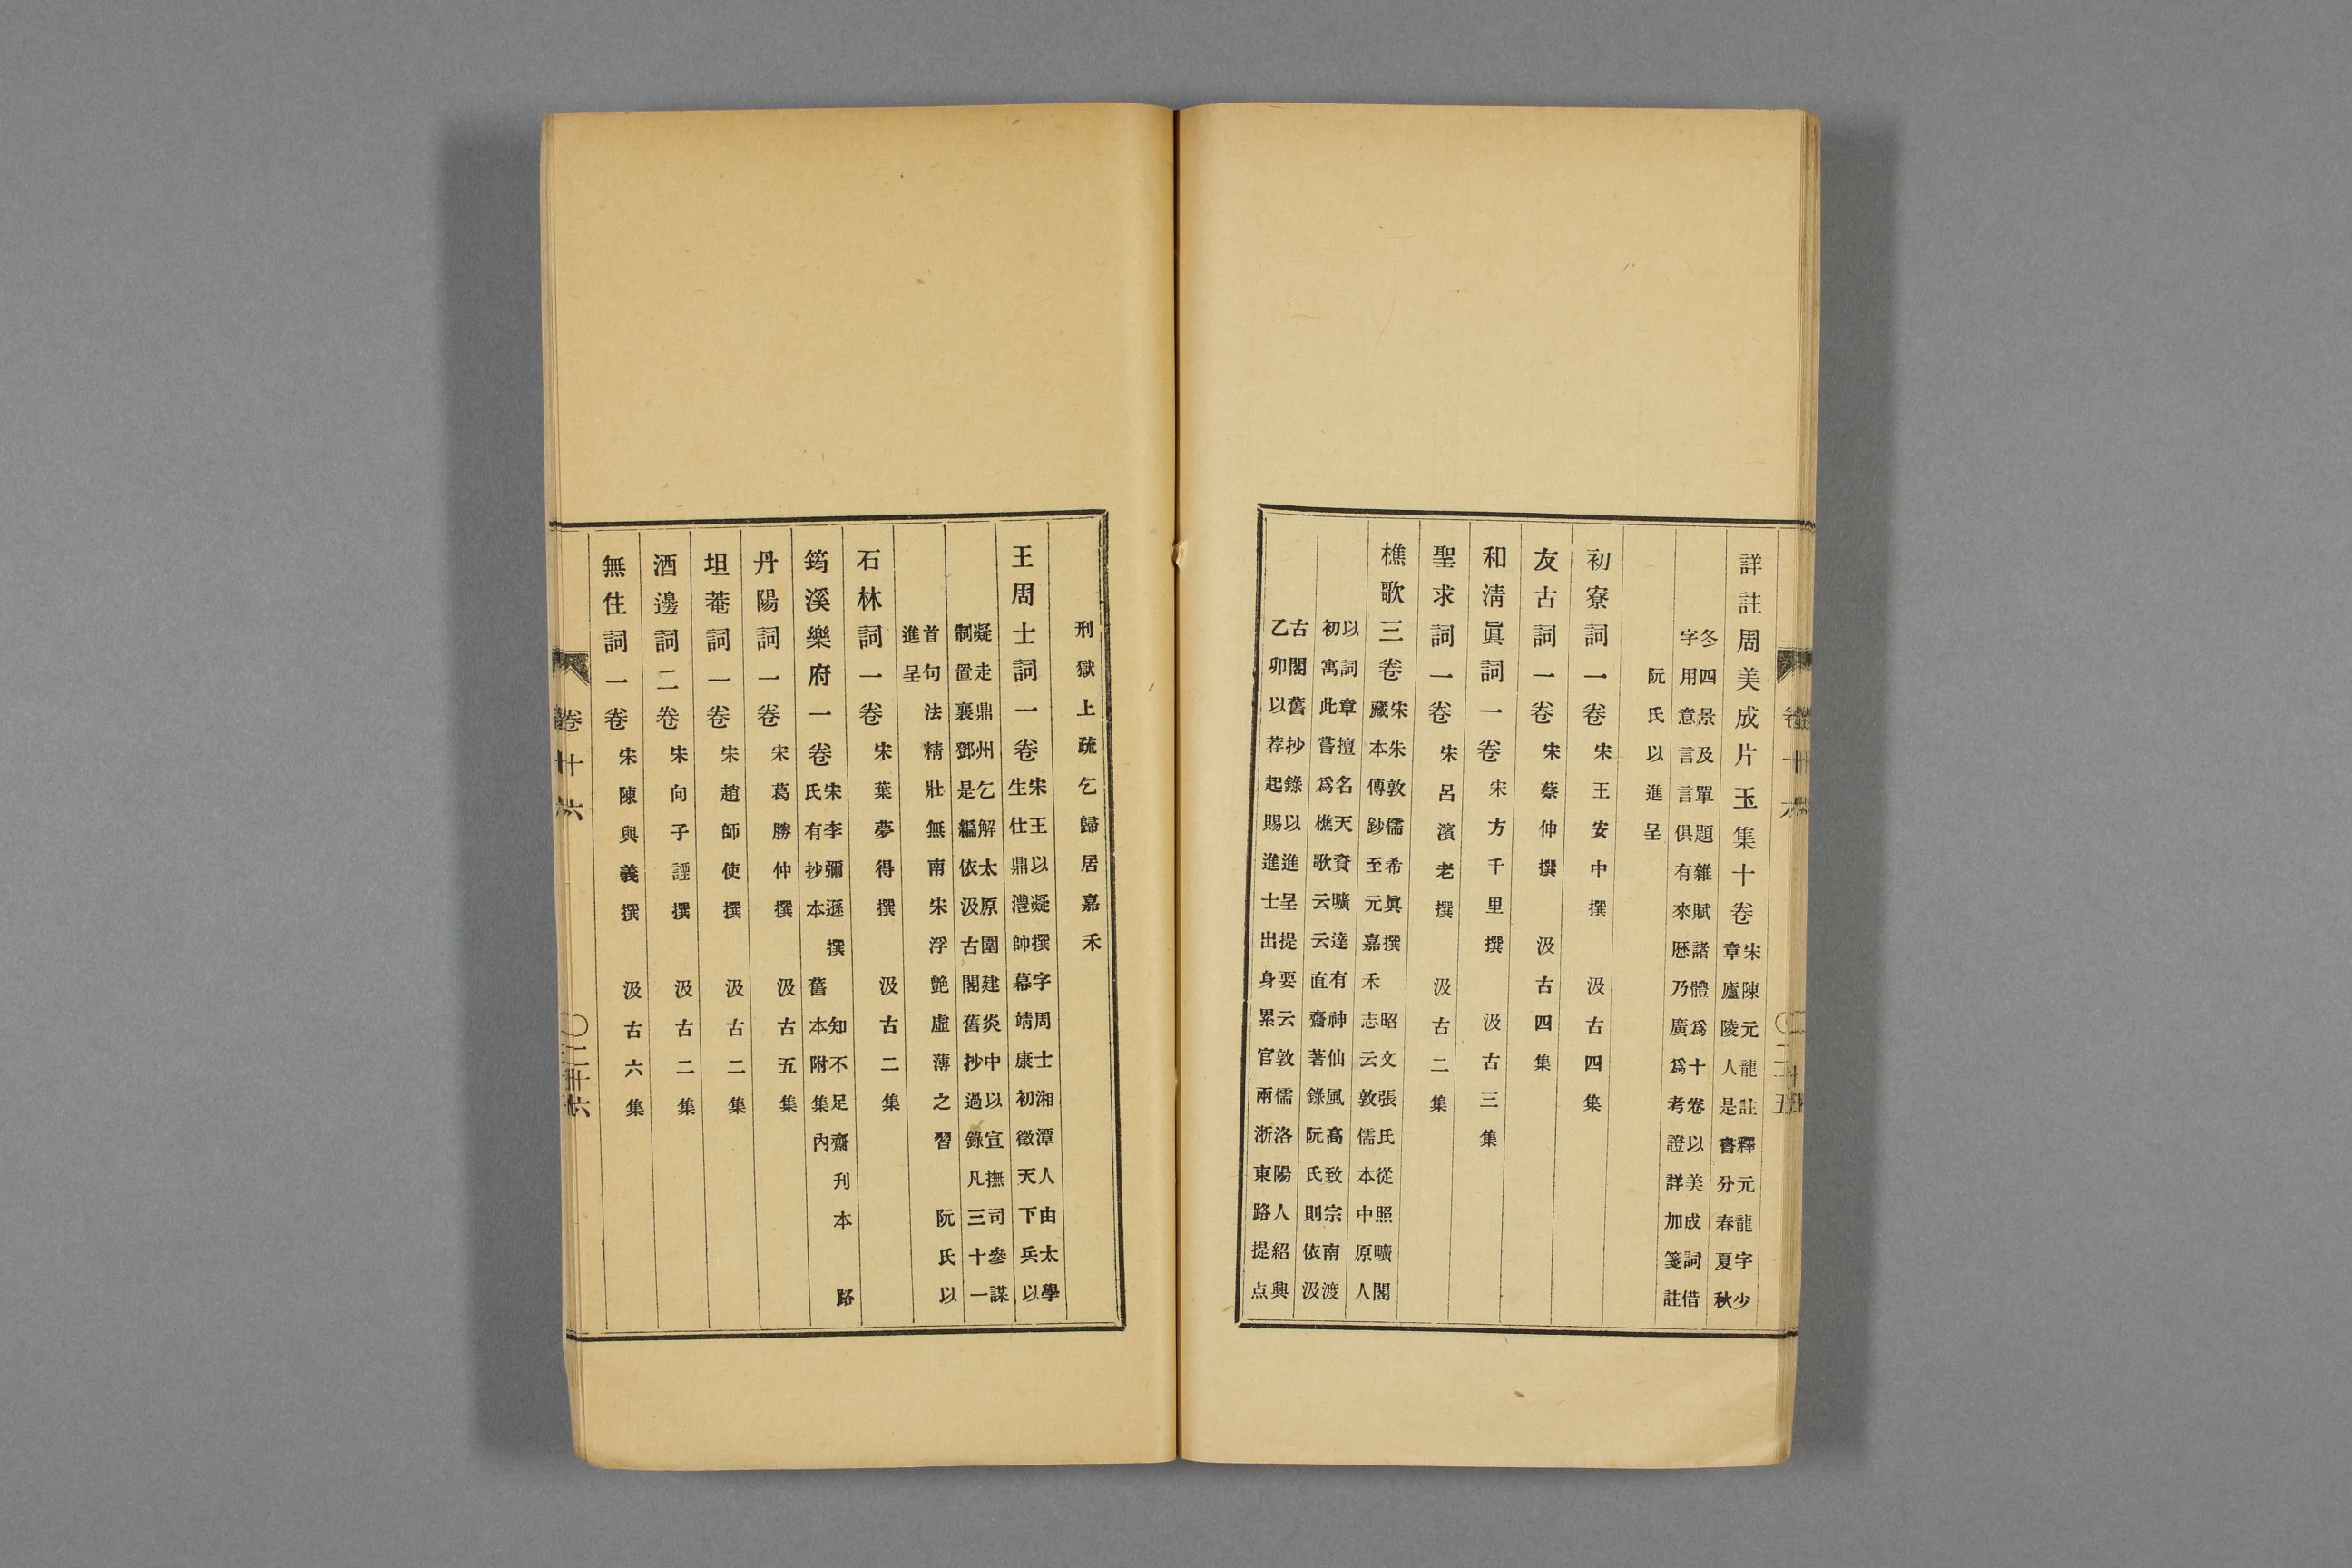 詳註周美成片玉集十卷
宋陳元龍註釋元龍字少
章廬陵人是書分春夏秋
冬四景及單題雜賦諸體爲十卷以美成詞借
字用意言言俱有來歷乃廣爲考證詳加箋註
阮氏以進呈
初寮詞一卷 宋王安中撰 汲古四集
友古詞一卷 宋蔡伸撰 汲古四集
和清眞詞一卷 宋方千里撰 汲古三集
聖求詞一卷 宋呂濱老撰 汲古二集
樵歌三卷
宋朱敦儒希眞撰 昭文張氏從照曠閣
藏本傳鈔至元嘉禾志云敦儒本中原人
以詞章擅名天資曠達有神仙風高致宗南渡
初寓此嘗爲樵歌云云直齋著錄阮氏則依汲
古閣舊抄錄以進呈提要云敦儒洛陽人紹興
乙卯以荐起賜進士出身累官兩浙東路提点
刑獄上疏乞歸居嘉禾
王周士詞一卷
宋王以凝撰字周士湘潭人由太學
生仕鼎澧帥幕靖康初徵天下兵以
凝走鼎州乞解太原圍建炎中以宣撫司參謀
制置襄鄧是編依汲古閣舊抄過錄凡三十一
首句法精壯無南宋浮艶虛薄之習 阮氏以
進呈
石林詞一卷 宋葉夢得撰 汲古二集
筠溪樂府一卷
宋李彌遜撰 知不足齋刊本 路
氏有抄本 舊本附集內
丹陽詞一卷 宋葛勝仲撰 汲古五集
坦菴詞一卷 宋趙師使撰 汲古二集
酒邊詞二卷 宋向子諲撰 汲古二集
無住詞一卷 宋陳與義撰 汲古六集
卷十六